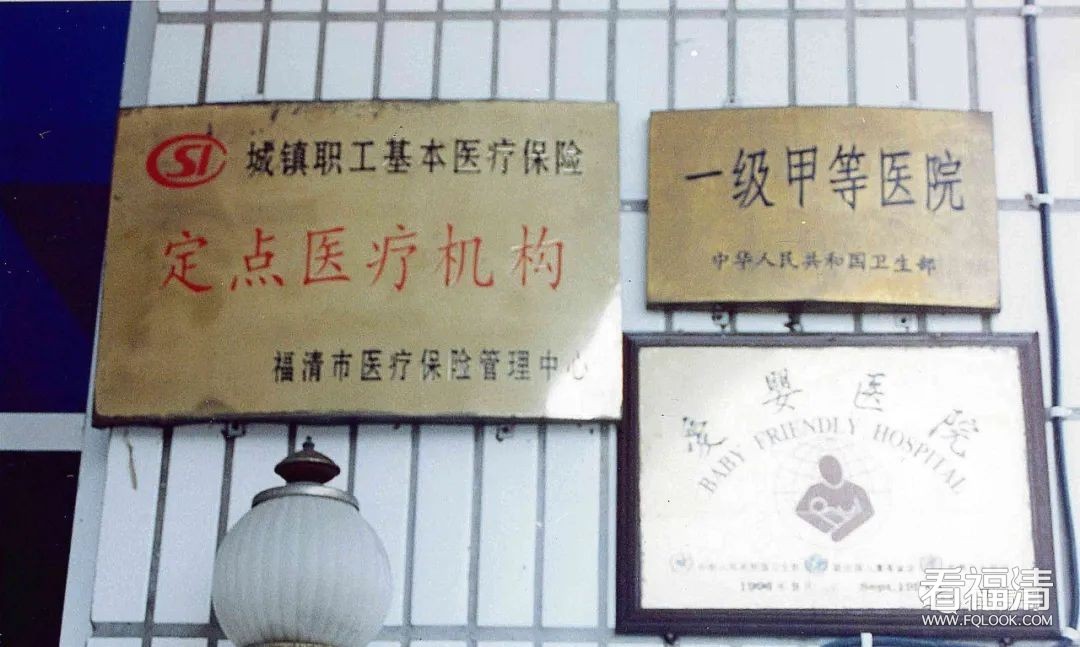 SI 城镇职工基本医疗保险
定点医疗机构
福清市医疗保险管理中心
一级甲等医院
中华人民共和国卫生部
爱婴医院
BABY FRIENDLY HOSPITAL
中华人民共和国卫生部
1996年9月 Sept.19
看福清
WWW.FQLOOK.COM